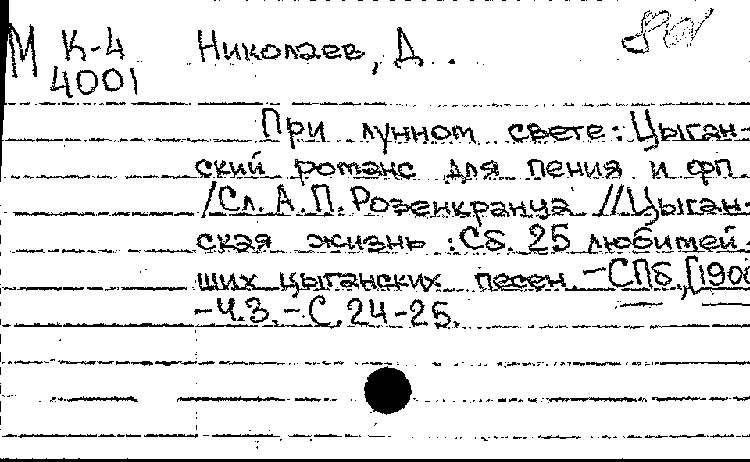 М К-4 Николаев, Д.
4001
При лунном свете: Цыган-
ский романс для пения и фп.
/Сл. А.П. Розенкранца //Цыган-
ская жизнь: Сб. 25 любимей-
ших цыганских песен.-СПб,[190
-Ч.3.-С.24-25.